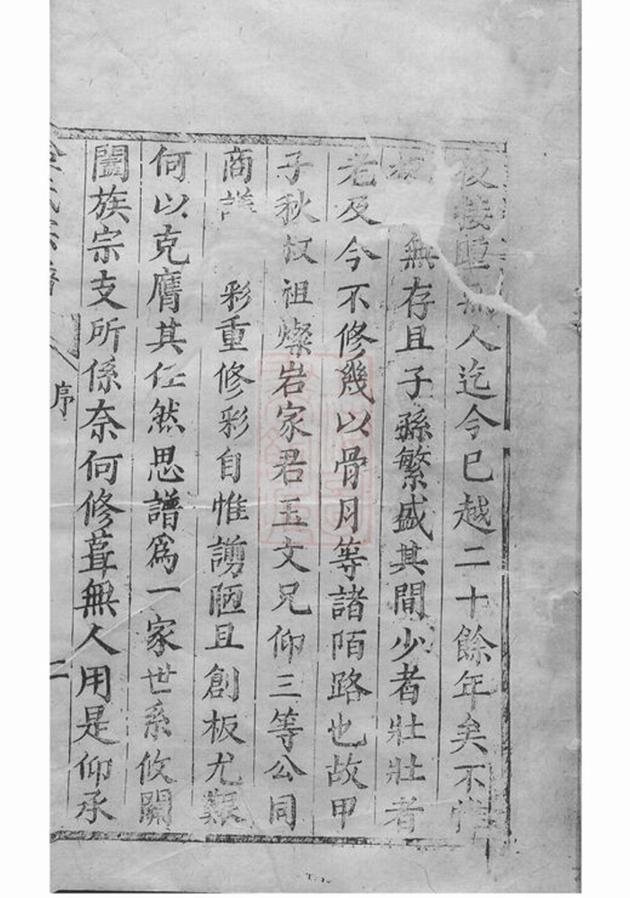 後接踵無人迄今已越二十餘年矣不惟
板 無存且子孫繁盛其間少者壯壯者
老及今不修幾以骨月等諸陌路也故甲
子秋叔祖燦岩家君玉文兄仰三等公同
商議 彩重修彩自惟謭陋且創板尤艱
何以克膺其任然思譜為一家世系攸關
闔族宗支所係奈何修葺無人用是仰承
氏宗譜 序 二